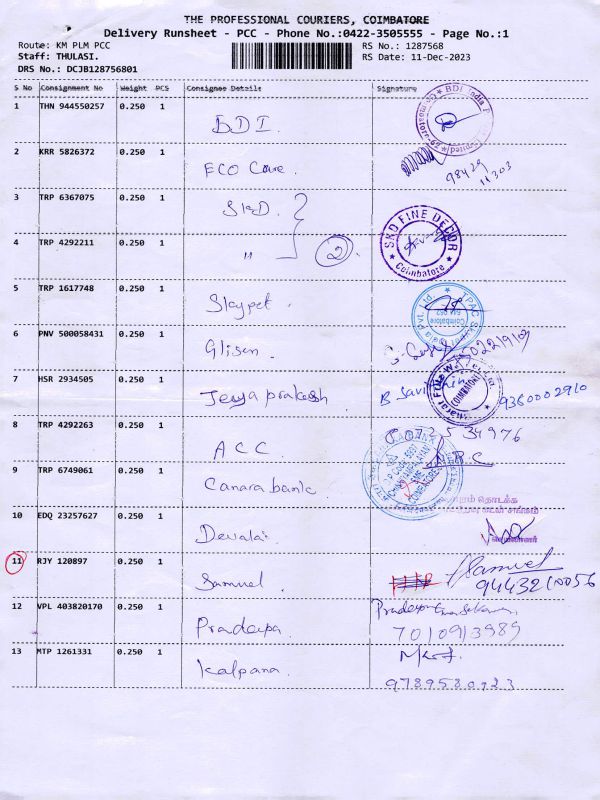 THE PROFESSIONAL COURIERS, COIMBATORE
Delivery Runsheet - PCC - Phone No.:0422-3505555 - Page No.:1
Route: KM PLM PCC RS No.: 1287568
Staff: THULASI. RS Date: 11-Dec-2023
DRS No.: DCJB128756801
S No Consignment No Weight PCS Consignee Details Signature
1 THN 944550257 0.250 1 BDI.
2 KRR 5826372 0.250 1 ECO Care. 98429
11303
3 TRP 6367075 0.250 1 SKD
SKD FINE DECOR
Coimbatore
4 TRP 4292211 0.250 1 " 2
5 TRP 1617748 0.250 1 Skypet.
Coimbatore
6 PNV 500058431 0.250 1 Glisen.
7 HSR 2934505 0.250 1 Jeyaprakash B Savi 9360002910
COIMBATORE
8 TRP 4292263 0.250 1 ACC.
9 TRP 6749061 0.250 1 Canara bank
10 EDQ 23257627 0.250 1 Devalai
11 RJY 120897 0.250 1 Samuel. Samuel
9443210056
12 VPL 403820170 0.250 1 Pradeepa.
7010913989
13 MTP 1261331 0.250 1 Kalpana.